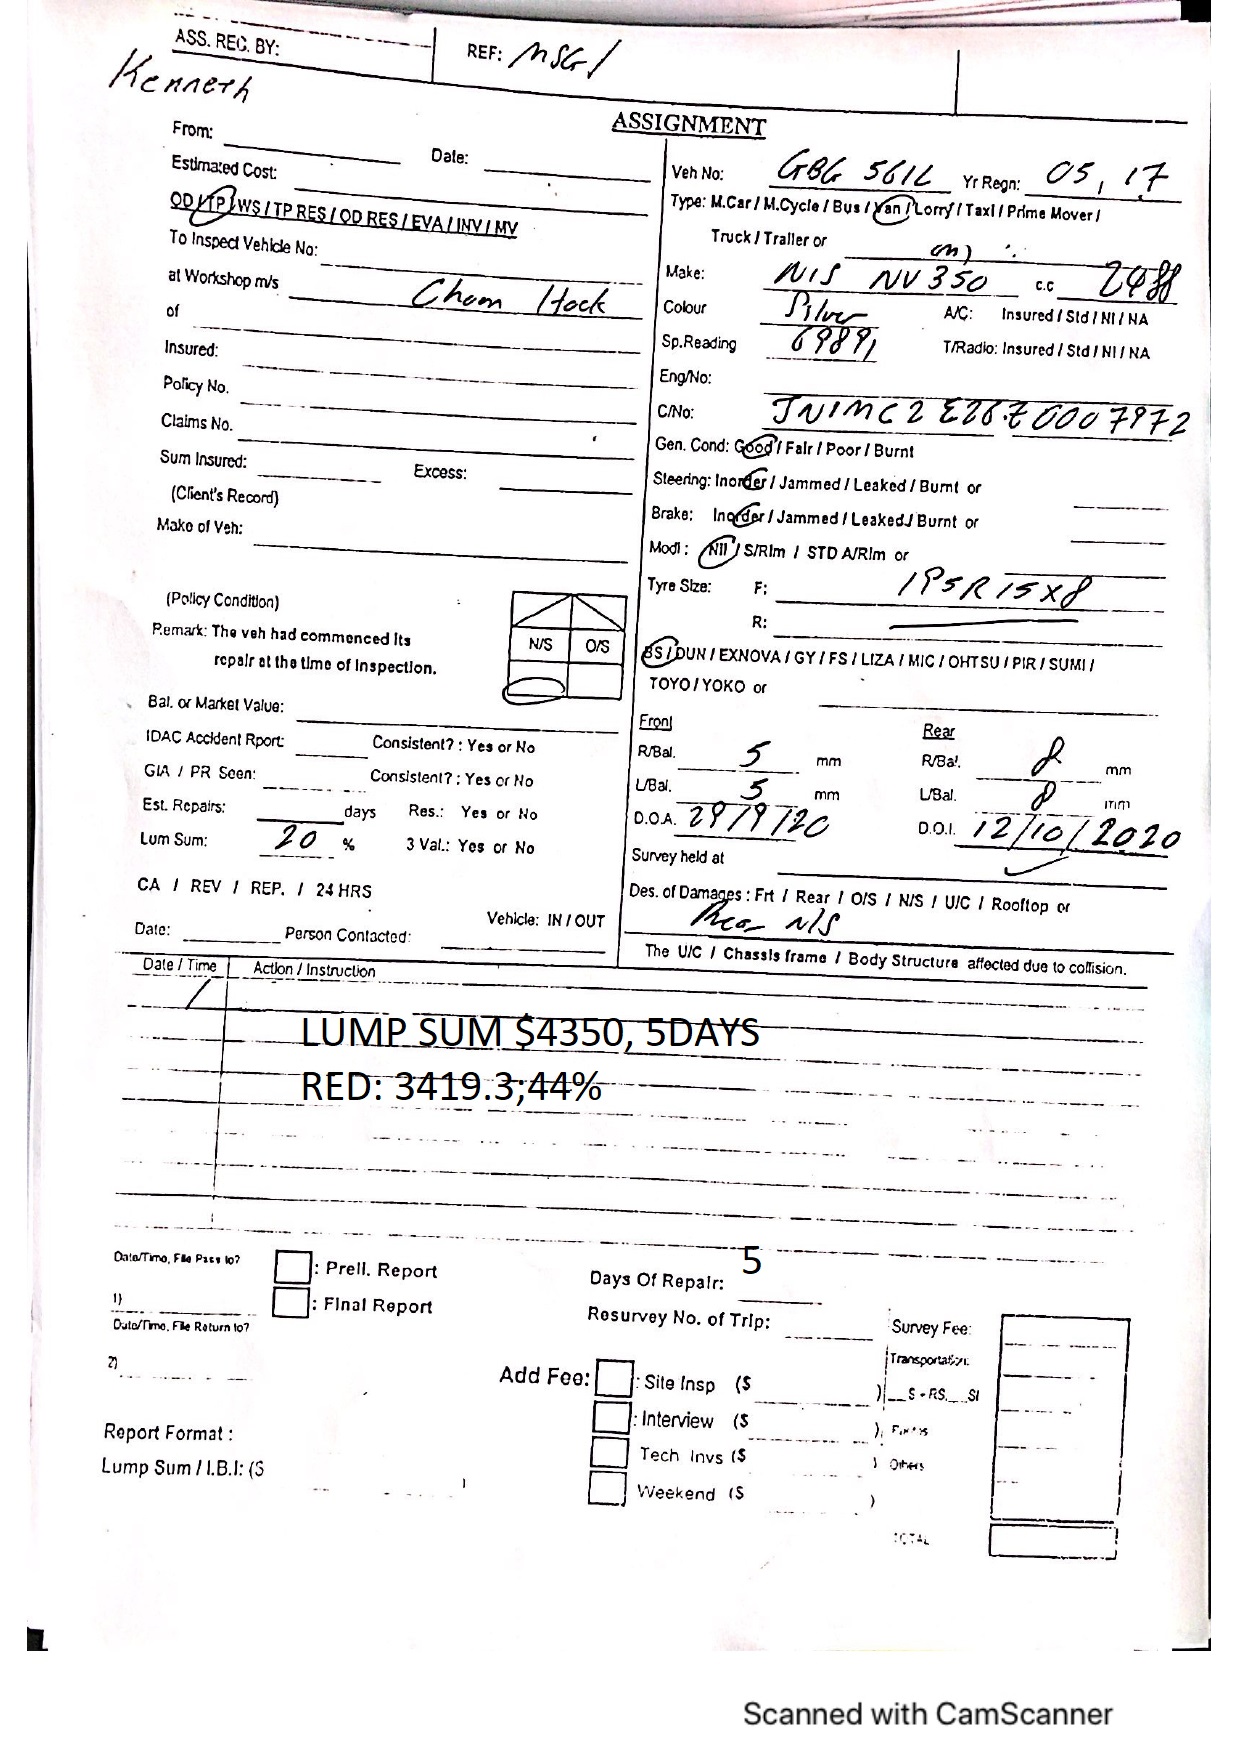 ASS. REC. BY:
REF: MSG/
Kenneth
ASSIGNMENT
From:
Date:
Estimated Cost:
OD / TP / WS / TP RES / OD RES / EVA / INV / MV
To Inspect Vehicle No:
at Workshop m/s Chom Hock
of
Insured:
Policy No.
Claims No.
Sum Insured:
Excess:
(Client's Record)
Make of Veh:
(Policy Condition)
Remark: The veh had commenced its
repair at the time of inspection.
N/S O/S
Bal. or Market Value:
IDAC Accident Rport: Consistent? : Yes or No
GIA / PR Seen: Consistent? : Yes or No
Est. Repairs: days Res.: Yes or No
Lum Sum: 20 % 3 Val.: Yes or No
CA / REV / REP. / 24 HRS
Vehicle: IN / OUT
Date: Person Contacted:
Veh No: GBG 561L Yr Regn: 05, 17
Type: M.Car / M.Cycle / Bus / Van / Lorry / Taxi / Prime Mover /
Truck / Trailer or
Make: NIS NV350 c.c 2488
Colour Silver A/C: Insured / Std / NI / NA
Sp.Reading 69891 T/Radio: Insured / Std / NI / NA
Eng/No:
C/No: JN1MC2E26Z0007972
Gen. Cond: Good / Fair / Poor / Burnt
Steering: Inorder / Jammed / Leaked / Burnt or
Brake: Inorder / Jammed / Leaked / Burnt or
Modi: Nil / S/Rim / STD A/Rim or
Tyre Size: F: 195R15X8
R:
BS / DUN / EXNOVA / GY / FS / LIZA / MIC / OHTSU / PIR / SUMI /
TOYO / YOKO or
Front Rear
R/Bal. 5 mm R/Bal. 8 mm
L/Bal. 5 mm L/Bal. 8 mm
D.O.A. 29/9/20 D.O.I. 12/10/2020
Survey held at
Des. of Damages : Frt / Rear / O/S / N/S / U/C / Rooftop or
Rear N/S
The U/C / Chassis frame / Body Structure affected due to collision.
Date / Time Action / Instruction
LUMP SUM $4350, 5DAYS
RED: 3419.3;44%
Date/Time, File Pass to?
: Preli. Report
1)
: Final Report
Date/Time, File Return to?
2)
Days Of Repair: 5
Resurvey No. of Trip:
Survey Fee:
Transportation:
Add Fee: : Site Insp ($ ) S + RS. SI
: Interview ($ )
Tech Invs ($ ) Others
Weekend ($ )
TOTAL
Report Format :
Lump Sum / I.B.I: ($ )
Scanned with CamScanner